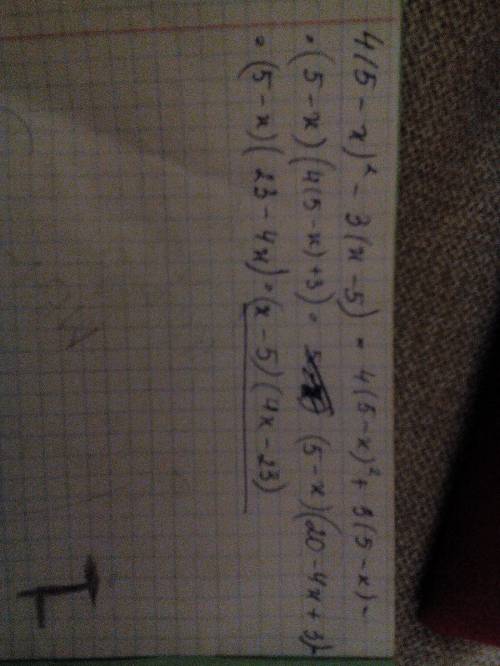 4(5 - x)² - 3(x - 5) = 4(5 - x)² + 3(5 - x) =
= (5 - x)(4(5 - x) + 3) = (5 - x)(20 - 4x + 3) =
= (5 - x)(23 - 4x) = (x - 5)(4x - 23)